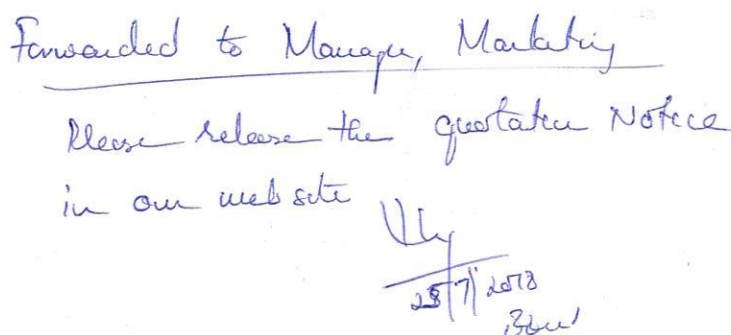 Forwarded to Manager, Marketing
Please release the quotation Notice
in our website
28/7/2018